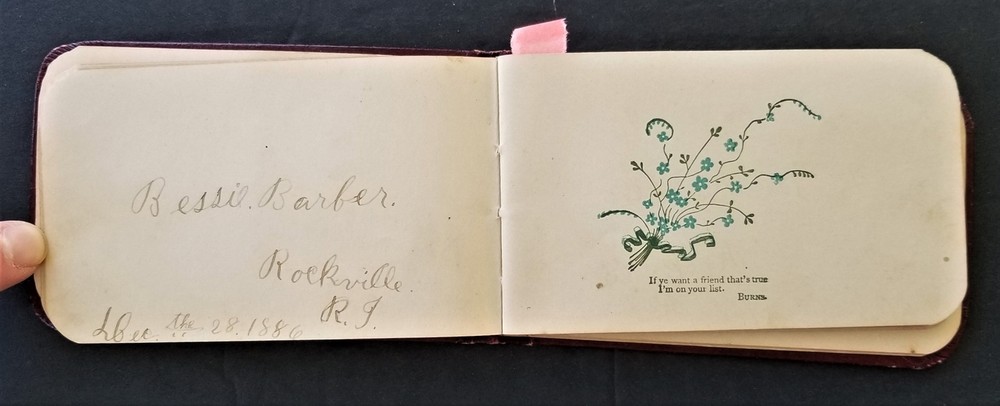 Bessie. Barber.
Rockville.
R. I.
Dec. the 28. 1886
If ye want a friend that's true
I'm on your list.
BURNS.